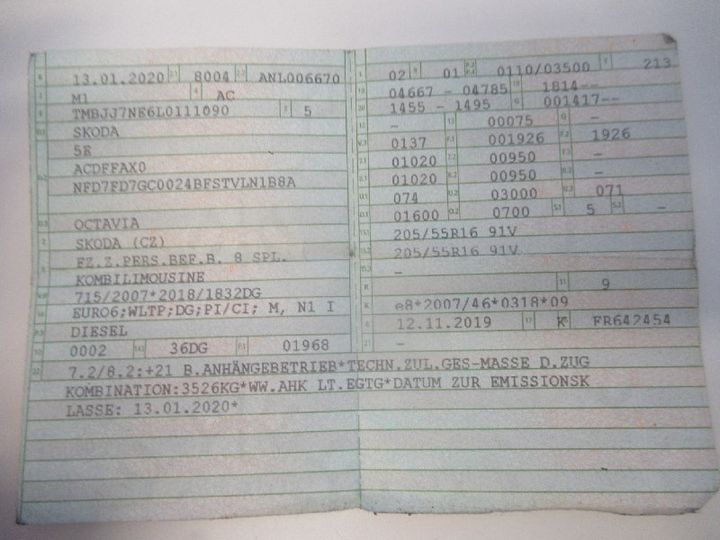 13.01.2020 8004 ANL006670
M1 AC
TMBJJ7NE6L0111090 5
SKODA
5E
ACDFFAX0
NFD7FD7GC0024BFSTVLN1B8A
OCTAVIA
SKODA (CZ)
FZ.Z.PERS.BEF.B. 8 SPL.
KOMBILIMOUSINE
715/2007*2018/1832DG
EURO6;WLTP;DG;PI/CI; M, N1 I
DIESEL
0002 36DG 01968
02 01 0110/03500 213
04667 - 04785 1814--
1455 - 1495 001417--
- 00075 -
0137 001926 1926
01020 00950 -
01020 00950 -
074 03000 071
01600 0700 5 -
205/55R16 91V
205/55R16 91V
-
9
e8*2007/46*0318*09
12.11.2019 K FR642454
-
7.2/8.2:+21 B.ANHÄNGEBETRIEB*TECHN.ZUL.GES-MASSE D.ZUG
KOMBINATION:3526KG*WW.AHK LT.EGTG*DATUM ZUR EMISSIONSK
LASSE: 13.01.2020*